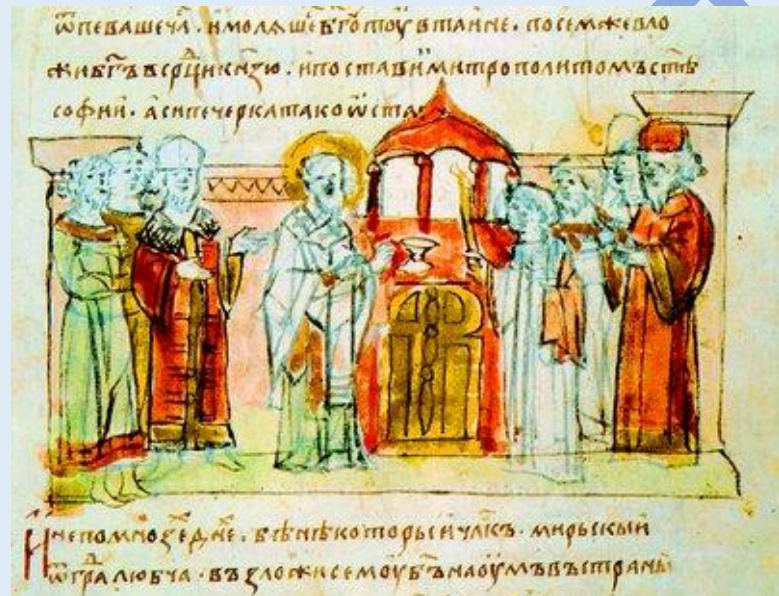 ѿпеваше ча҇. и молѧше бг҃о тоу в таине. посем же вло
жи бг҃ъ в ср҃ци кн҃зю. и постави и митрополитомъ ст҃ѣ
софии. а си печерка тако ѿста
И не по мноsе дн҃е. бѣ нѣкоторыи чл҃къ. мирьскыи
ѿ гра любча. въsложи семоу бг҃ъ на оумъ въ страны